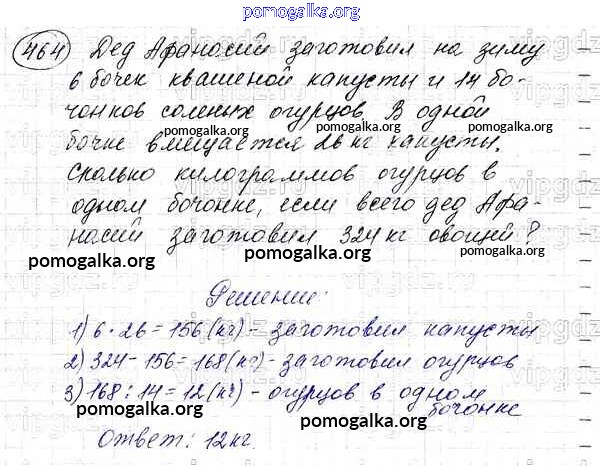 pomogalka.org
464 Дед Афанасий заготовил на зиму
6 бочек квашеной капусты и 14 бо-
чонков соленых огурцов. В одной
pomogalka.org pomogalka.org
бочке вмещается 26 кг капусты.
Сколько килограммов огурцов в
одном бочонке, если всего дед Афа-
насий заготовил 324 кг овощей?
pomogalka.org pomogalka.org
Решение:
1) 6 · 26 = 156 (кг) - заготовил капусты
2) 324 - 156 = 168 (кг) - заготовил огурцов
3) 168 : 14 = 12 (кг) - огурцов в одном
бочонке
pomogalka.org pomogalka.org
Ответ: 12 кг.
pomogalka.org